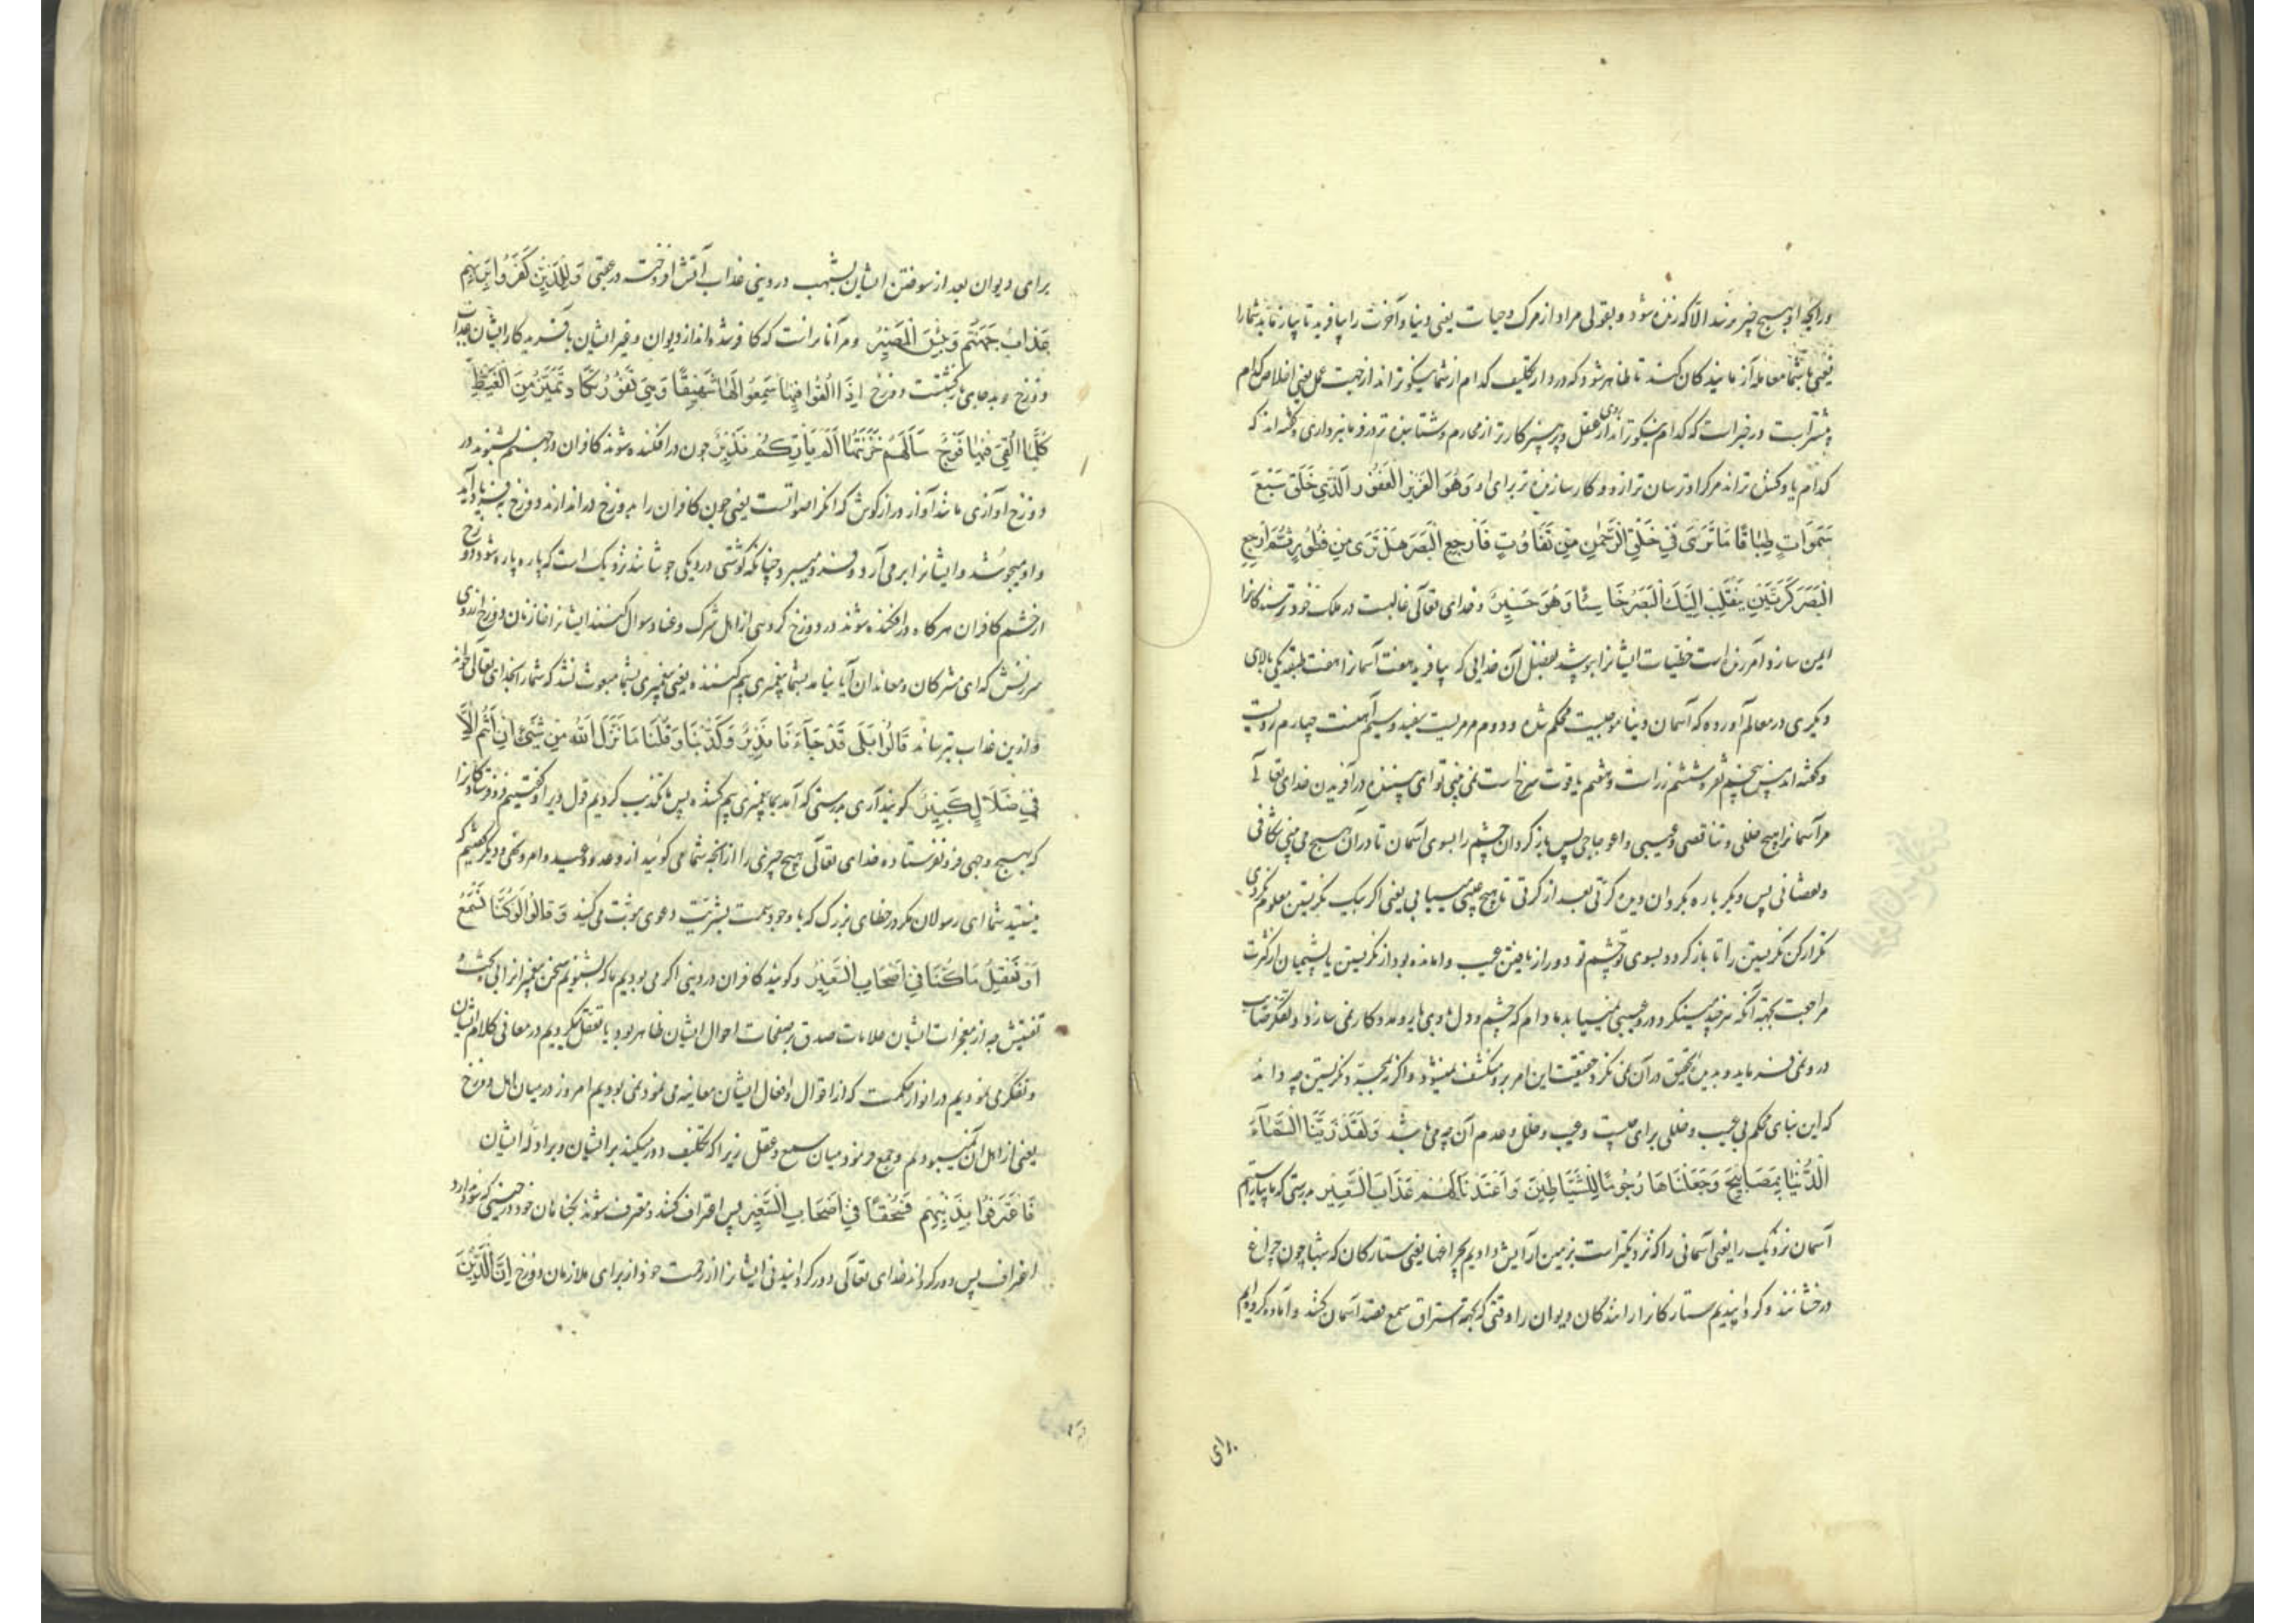 ورایحه او بهیچ چیز نرسد الا که زنده شود و بقولی مراد از مرک و حیات یعنی دنیا و آخرت را بیافرید تا بیازماید شما را
یعنی با شما معامله آزمایندکان کند تا ظاهر شود که در دار تکلیف کدام از شما نیکوتر اند از جهت عمل یعنی اخلاص کدام
بیشتر است در خبر است که کدام نیکوتر اند از روی عقل و پرهیزکارتر از محارم و شتابنده تر در فرمانبرداری و کفته اند که
کدام یادکننده تر اند مرک را و ترسان تر ازو و کارسازنده تر برای او وَهُوَ الْعَزِیزُ الْغَفُورُ الَّذِی خَلَقَ سَبْعَ
سَمَوَاتٍ طِبَاقًا مَا تَرَی فِی خَلْقِ الرَّحْمٰنِ مِنْ تَفَاوُتٍ فَارْجِعِ الْبَصَرَ هَلْ تَرَی مِنْ فُطُورٍ ثُمَّ ارْجِعِ
الْبَصَرَ کَرَّتَیْنِ یَنْقَلِبْ اِلَیْکَ الْبَصَرُ خَاسِئًا وَهُوَ حَسِیرٌ و خدای تعالی غالبست در ملک خود ترسندکانرا
ایمن سازد و آمرزنده است خطیئات ایشانرا بپوشد بفضل آن خدایی که بیافرید هفت آسمانرا هفت طبقه یکی بالای
دیکری در معالم آورده که آسمان دنیا موجیست محکم شده و دوم مرمریست سفید و سیم آهنست چهارم رویست
و کفته اند مس پنجم نقره و ششم زر است و هفتم یاقوت سرخ است نمی بینی تو ای بیننده در آفریدن خدای تعالی
مر آسمانرا هیچ خللی و تناقصی و عیبی و اعوجاجی پس باز کردان چشم را بسوی آسمان تا در آن هیچ می بینی شکافی
و نقصانی پس دیکر باره بکردان دیده کرتی بعد از کرتی تا هیچ عیبی میبیابی یعنی اکر بیک نکریستن معلوم نکردی
تکرار کن نکریستن را تا باز کردد بسوی تو چشم تو دور از یافتن عیب و امانده بود از نکریستن یا پشیمان از کثرت
مراجعت بجهة آنکه هر چند مینکرد درو عیبی نمییابد مادام که چشم و دل
درو نمی فرماید و بدیده تحقیق در آن نمی نکرد حقیقت این امر برو منکشف نمیشود و اکر نه بمجرد نکریستن چه داند
که این بنای محکم بی عیب و خللی برای چیست و عیب و خلل و عدم آن چه می باشد وَلَقَدْ زَیَّنَّا السَّمَآءَ
الدُّنْیَا بِمَصَابِیحَ وَجَعَلْنَاهَا رُجُومًا لِلشَّیَاطِینِ وَاَعْتَدْنَا لَهُمْ عَذَابَ السَّعِیرِ بدرستی که ما بیاراستیم
آسمان نزدیک را یعنی آسمانی را که نزدیکتر است بزمین آرایش دادیم بچراغها یعنی ستارکان که شبها چون چراغ
درخشانند و کردانیدیم ستارکانرا رانندکان دیوان را وقتی که بجهة استراق سمع قصد آسمان کنند و آماده کرده ایم
برای
برای دیوان بعد از سوختن ایشان بشهب در دینی عذاب آتش افروخته در عقبی وَلِلَّذِینَ کَفَرُوا بِرَبِّهِمْ
عَذَابُ جَهَنَّمَ وَبِئْسَ الْمَصِیرُ و مر آنانراست که کافر شده اند از دیوان و غیر ایشان بآفریدکار ایشان عذاب
دوزخ و بد جای بازکشتست دوزخ اِذَا اُلْقُوا فِیهَا سَمِعُوا لَهَا شَهِیقًا وَهِیَ تَفُورُ تَکَادُ تَمَیَّزُ مِنَ الْغَیْظِ
کُلَّمَا اُلْقِیَ فِیهَا فَوْجٌ سَاَلَهُمْ خَزَنَتُهَا اَلَمْ یَاْتِکُمْ نَذِیرٌ چون درافکنده شوند کافران در جهنم بشنوند در
دوزخ آوازی مانند آواز درازکوش که انکر اصواتست یعنی چون کافران را بدوزخ دراندازند دوزخ بفریاد آید
و او میجوشد و ایشانرا بر می آرد و فرو میبرد چنانکه کوشتی در دیکی جوشانند نزدیک است که پاره پاره شود دوزخ
از خشم کافران هر کاه درافکنده شوند در دوزخ کروهی از اهل شرک و عناد سوال کنند ایشانرا خازنان دوزخ از روی
سرزنش که ای مشرکان و معاندان آیا نیامد بشما پیغمبری بیم کننده یعنی پیغمبری بشما مبعوث نشد که شما را بخدای تعالی خواند
و ازین عذاب بترساند قَالُوا بَلَی قَدْ جَآءَنَا نَذِیرٌ فَکَذَّبْنَا وَقُلْنَا مَا نَزَّلَ اللهُ مِنْ شَیْءٍ اِنْ اَنْتُمْ اِلَّا
فِی ضَلَالٍ کَبِیرٍ کویند آری بدرستی که آمد بما پیغمبری بیم کننده پس ما تکذیب کردیم قول ویرا و کفتیم
که بهیچ وجهی فرو نفرستاده خدای تعالی هیچ چیزی را از آنچه شما می کوئید از وعد و وعید و امر و نهی و دیکر کفتیم که
نیستید شما ای رسولان مکر در خطای بزرک که با وجود سمت بشریّت دعوی نبوّت می کنید وَقَالُوا لَوْ کُنَّا نَسْمَعُ
اَوْ نَعْقِلُ مَا کُنَّا فِی اَصْحَابِ السَّعِیرِ و کویند کافران در دینی اکر می بودیم ما که بشنویم سخن پیغمبرانرا بی بحث و
تفتیش چه از معجزات ایشان علامات صدق بر صفحات احوال ایشان ظاهر بود یا تعقل میکردیم در معانی کلام ایشان
و تفکر می نمودیم در انوار حکمت که از اقوال و افعال ایشان معاینه می نمود نمی بودیم امروز در میان اهل دوزخ
یعنی از اهل آن نمیبودیم و جمع فرمود میان سمع و عقل زیرا که تکلیف دور میکند بر ایشان و بر ادله ایشان
فَاعْتَرَفُوا بِذَنْبِهِمْ فَسُحْقًا فِی اَصْحَابِ السَّعِیرِ پس اعتراف کنند و معترف شوند بکناهان خود در حینی که سود ندارد
اعتراف پس دور کرداند خدای تعالی دور کردانیدنی ایشانرا از رحمت خود از برای ملازمان دوزخ اِنَّ الَّذِینَ